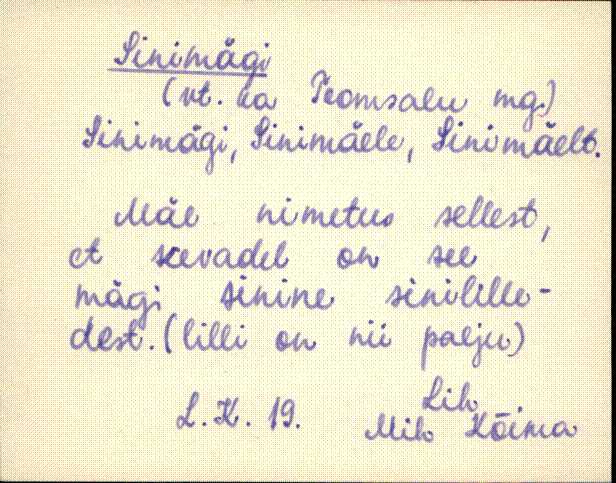 Sinimägi
(vt. ka Teomsalu mg.)
Sinimägi, Sinimäele, Sinimäelt.
Mäe nimetus sellest,
et kevadel on see
mägi sinine sinilille-
dest. (lilli on nii palju)
Lih.
L. K. 19. Mih Kõima